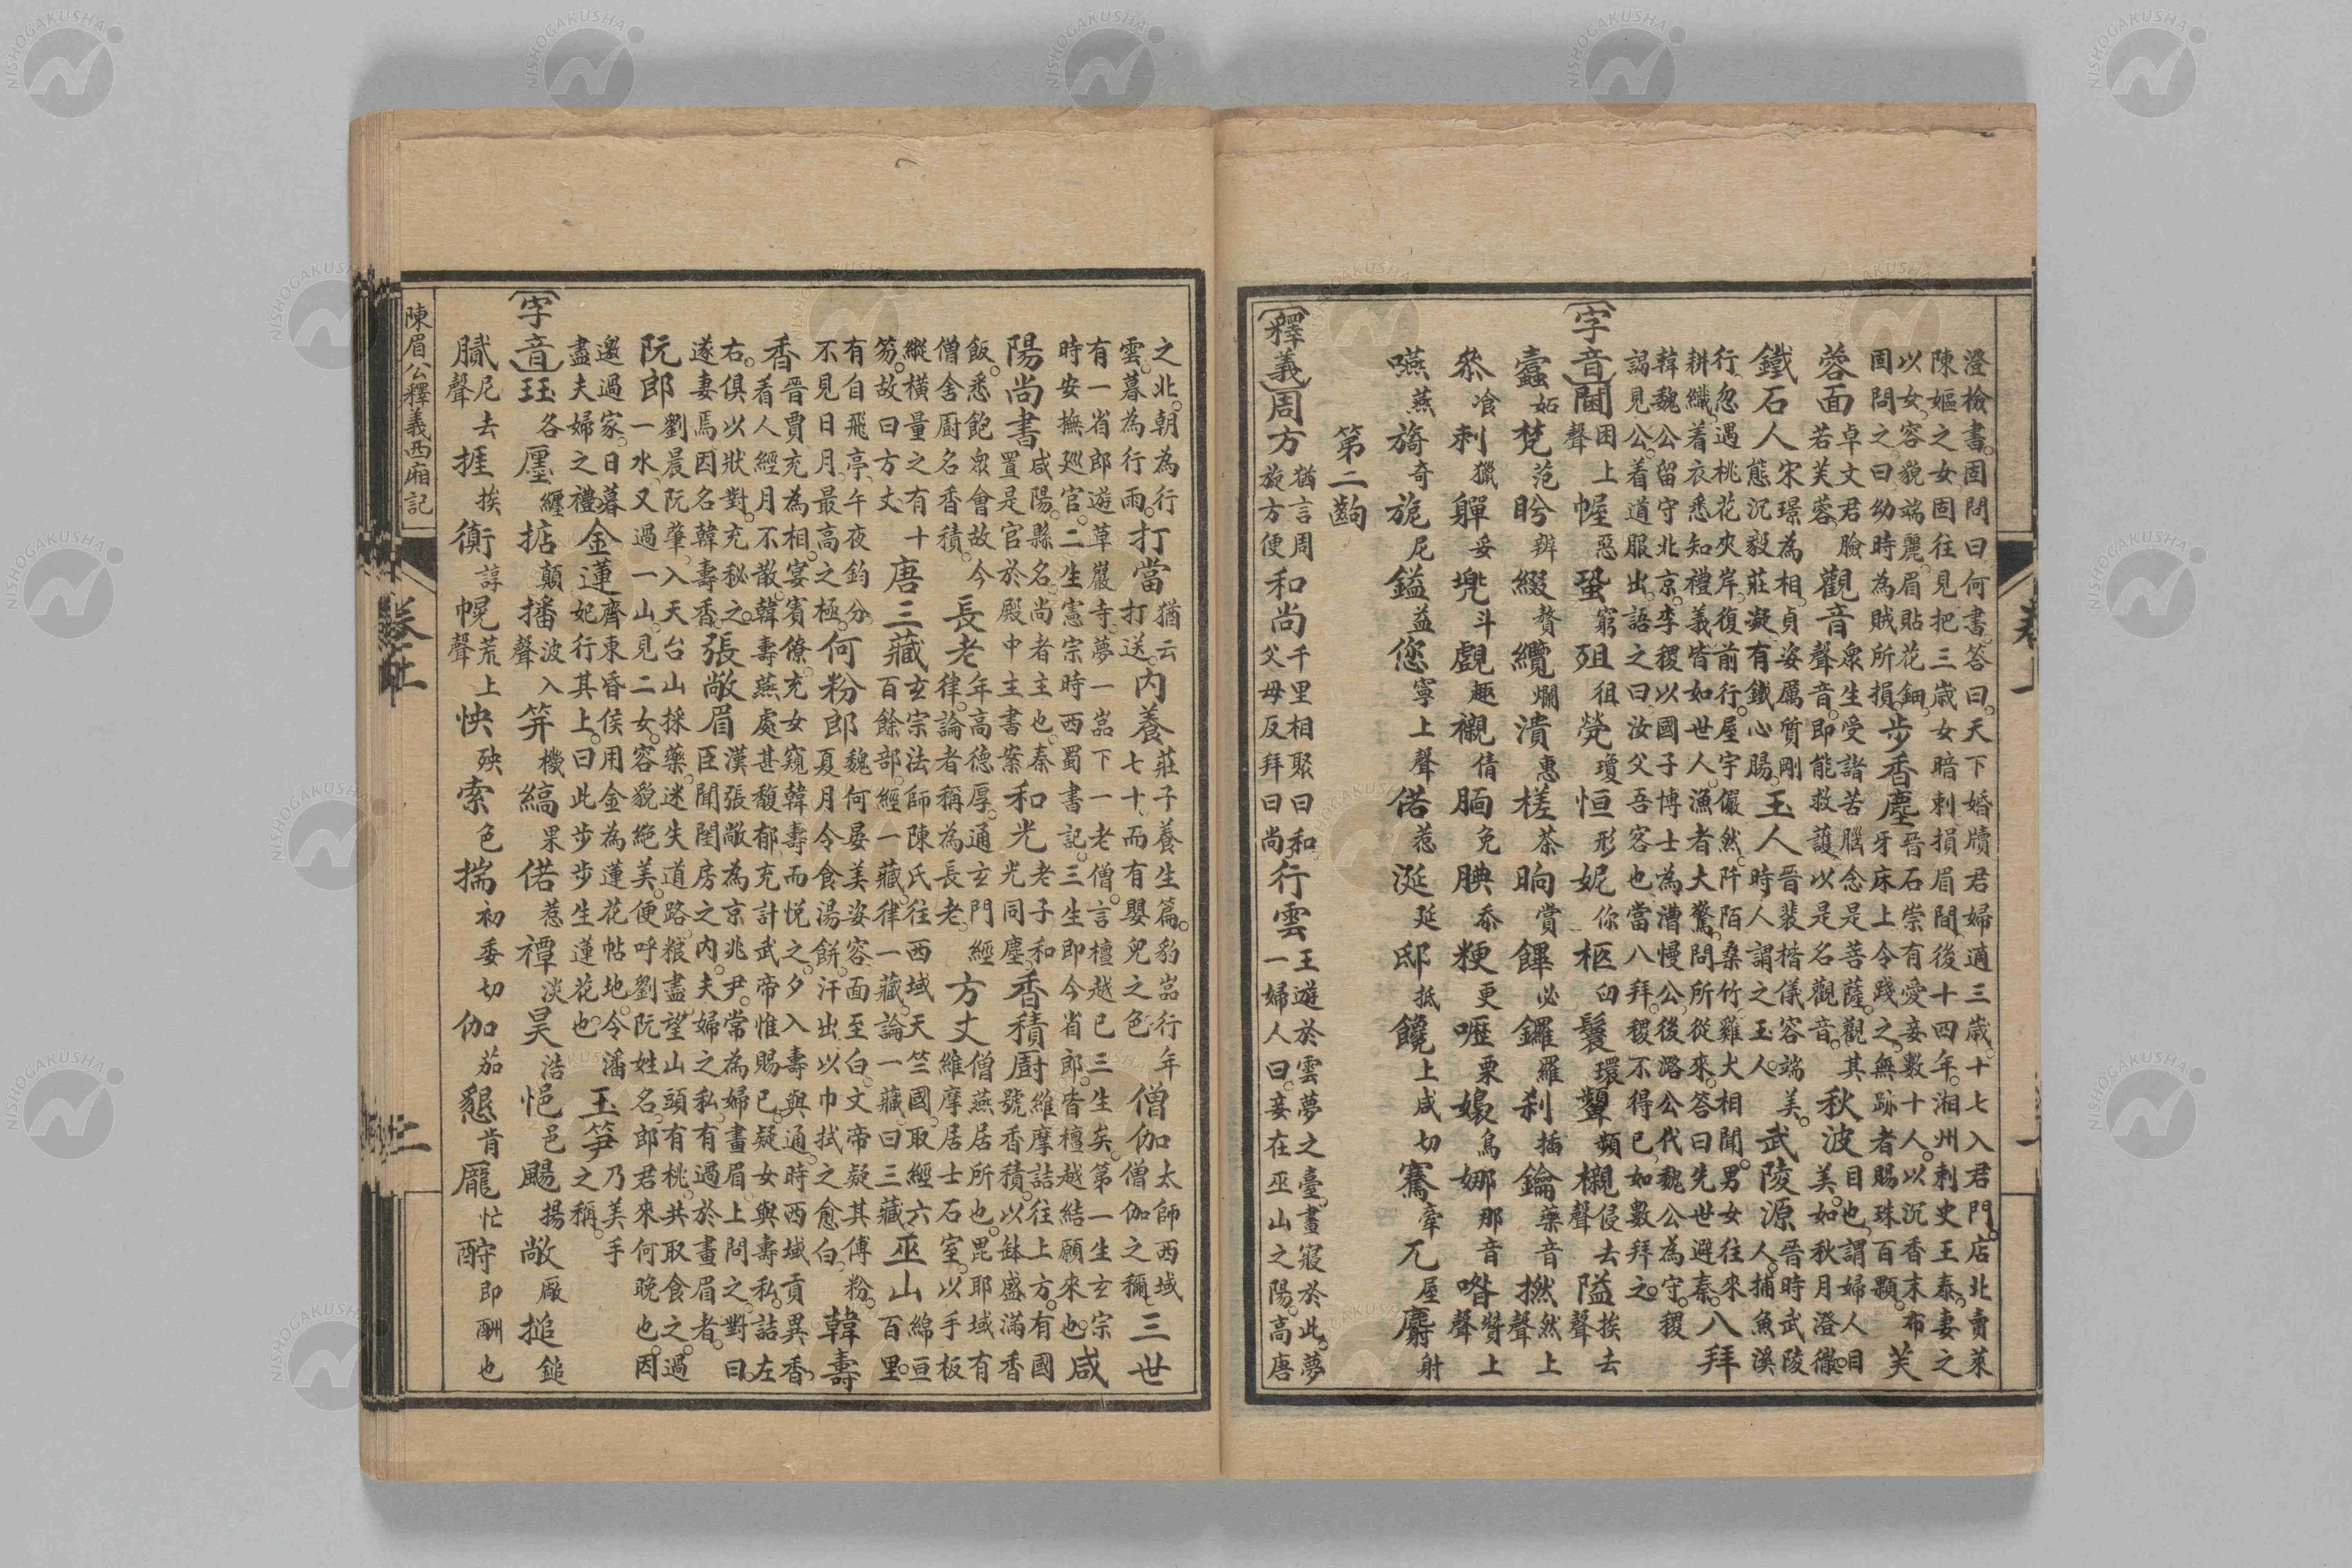 澄檢書。固問曰何書。答曰天下婚牘君婦適三歲。十七入君門。店北賣菜
陳嫗之女固往見把三歲女暗刺損眉間後十四年。湘州刺史王泰妻之
以女。容貌端麗。眉貼花鈿。固問之曰幼時為賊所損。步香塵 晉石崇有愛妾數十人。以沉香末布牙床上令踐之。無跡者賜珠百顆。芙
蓉面 卓文君臉若芙蓉。觀音 衆生受諸苦腦念是菩薩。觀其聲音。即能救護以是名觀音。秋波 目也。謂婦人目美。如秋月澄徹
鐵石人 宋璟為相。貞姿厲質剛態沉毅莊凝有鐵心腸。玉人 晉裴楷儀容端美。時人謂之玉人。武陵源 晉時武陵人。捕魚溪
行。忽遇桃花夾岸。復前行。屋宇儼然。阡陌桑竹雞犬相聞。男女往來耕織。着衣悉知禮義皆如世人。漁者大驚問所從來。答曰先世避秦。八拜
韓魏公留守北京。李稷以國子博士為漕慢公。後潞公代魏公為守。稷
謁見公。着道服出。語之曰汝父吾客也。當八拜。稷不得已。如數拜之。
字音 閫 困上聲 幄 惡 蛩 窮 殂 徂 煢 瓊 恒 形 妮 你 柩 臼 鬟 環 顰 頻 櫬 侵去聲 隘 挨去聲
蠹 妬 梵 范 盻 辨 綴 贅 纜 爛 潰 惠 槎 茶 晌 賞 饆 必 鑼 羅 刹 插 鑰 藥音 撚 然上聲
叅 飡 刺 獵 軃 妥 兠 斗 覷 趣 襯 倩 腼 免 腆 忝 粳 更 嚦 栗 嬝 鳥 娜 那音 喒 昝上聲
嚥 燕 旖 奇 旎 尼 鎰 益 您 寧上聲 偌 惹 涎 延 邸 抵 饒 上咸切 騫 牽 兀 屋 麝 射
第二齣
釋義 周方 猶言周旋方便 和尚 千里相聚曰和父母反拜曰尚 行雲 王遊於雲夢之臺。晝寢於此。夢一婦人曰。妾在巫山之陽。高唐
之北。朝為行雲。暮為行雨。打當 猶云打送。內養 莊子養生篇。豹嵓行年七十而有嬰兒之色 僧伽 太師西域僧伽之稱 三世
有一省郎遊草巖寺。夢一嵓下一老僧。言檀越已三生矣。第一生玄宗時安撫廵官。二生憲宗時西蜀書記。三生即今省郎。皆檀越結願來也。咸
陽尚書 咸陽。縣名。尚者主也。秦置是官於殿中主書案 和光 老子和光同塵 香積廚 維摩詰往上方。有國號香積。以缽盛滿香
飯。悉飽衆會故今僧舍廚名香積。長老 年高德厚。通玄門經律。論者稱為長老。方丈 僧燕居所也。毘耶域有維摩居士石室。以手板
縱橫量之有十笏。故曰方丈 唐三藏 玄宗法師陳氏往西域天竺國。取經六百餘部。經一藏。律一藏。論一藏。曰三藏。巫山 綿亘百里。
有自飛亭。午夜鈞分。不見日月。最高之極。何粉郎 魏何晏美姿容。面至白。文帝疑其傅粉。夏月令食湯餅。汗出以巾拭之愈白。韓壽
香 晉賈充為相。宴賓僚。充女窺韓壽而悅之。夕入壽與通。時西域貢異香。看人經月不散。韓壽燕處甚馥郁。充計武帝惟賜已。疑女與壽私。詰左
右。俱以狀對。充秘之。遂妻焉因名韓壽香。張敞眉 漢張敞為京兆尹。常為婦畫眉。上問之。對曰。臣聞閨房之內。夫婦之私。有過於畫眉者。
阮郎 劉晨阮肇。入天台山採藥。迷失道路。粮盡。望山頭有桃。共取食之。過一水。又過一山。見二女。容貌絕美。便呼劉阮姓名。郎君來何晚也。因
邀過家。日暮盡夫婦之禮 金蓮 齊東昏侯用金為蓮花帖地。令潘妃行其上。曰此步步生蓮花也。玉笋 乃美手之稱。
字音 珏 各 廛 纏 掂 顛 播 波入聲 笄 機 縞 果 偌 惹 禫 淡 昊 浩 悒 邑 颺 揚 敞 厰 搥 鎚
膩 尼去聲 捱 挨 衠 諄 幌 荒上聲 怏 殃 索 色 揣 初委切 伽 茄 懇 肯 龐 忙 酧 即酬也
陳眉公釋義西廂記